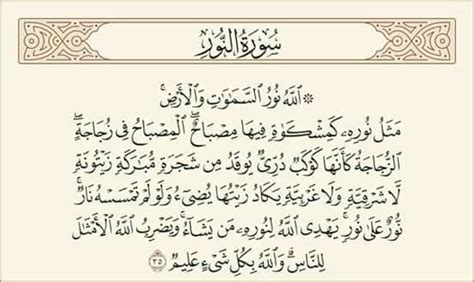 سُورَةُ النُّورِ
۞ ٱللَّهُ نُورُ ٱلسَّمَـٰوَٰتِ وَٱلْأَرْضِ ۚ
مَثَلُ نُورِهِۦ كَمِشْكَوٰةٍ فِيهَا مِصْبَاحٌ ۖ ٱلْمِصْبَاحُ فِى زُجَاجَةٍ ۖ
ٱلزُّجَاجَةُ كَأَنَّهَا كَوْكَبٌ دُرِّىٌّ يُوقَدُ مِن شَجَرَةٍ مُّبَـٰرَكَةٍ زَيْتُونَةٍ
لَّا شَرْقِيَّةٍ وَلَا غَرْبِيَّةٍ يَكَادُ زَيْتُهَا يُضِىٓءُ وَلَوْ لَمْ تَمْسَسْهُ نَارٌ ۚ
نُّورٌ عَلَىٰ نُورٍ ۗ يَهْدِى ٱللَّهُ لِنُورِهِۦ مَن يَشَآءُ ۚ وَيَضْرِبُ ٱللَّهُ ٱلْأَمْثَـٰلَ
لِلنَّاسِ ۗ وَٱللَّهُ بِكُلِّ شَىْءٍ عَلِيمٌ ٣٥